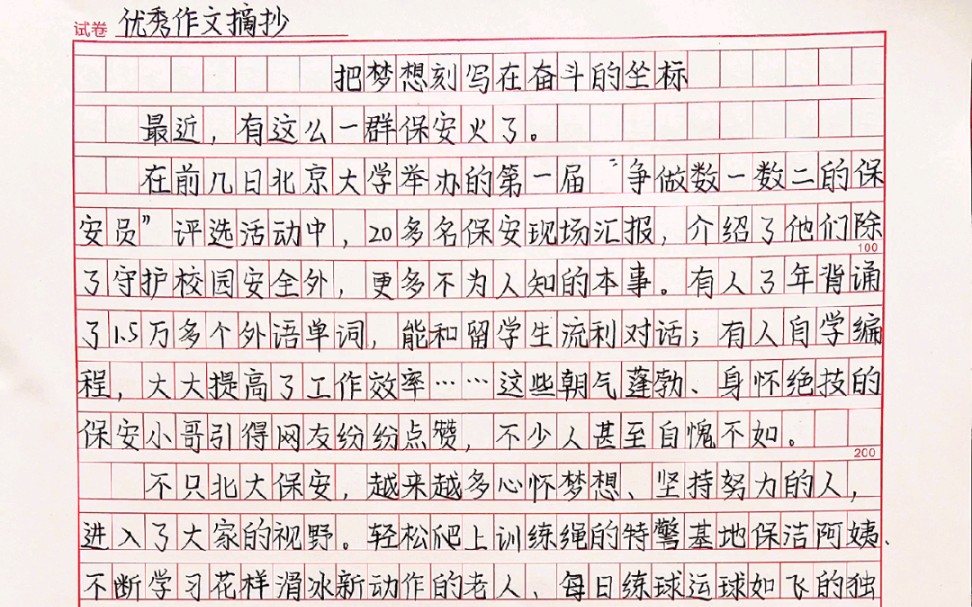 试卷 优秀作文摘抄
把梦想刻写在奋斗的坐标
最近，有这么一群保安火了。
在前几日北京大学举办的第一届“争做数一数二的保
安员”评选活动中，20多名保安现场汇报，介绍了他们除
100
了守护校园安全外，更多不为人知的本事。有人了年背诵
了1.5万多个外语单词，能和留学生流利对话；有人自学编
程，大大提高了工作效率……这些朝气蓬勃、身怀绝技的
保安小哥引得网友纷纷点赞，不少人甚至自愧不如。
200
不只北大保安，越来越多心怀梦想、坚持努力的人，
进入了大家的视野。轻松爬上训练绳的特警基地保洁阿姨、
不断学习花样滑冰新动作的老人、每日练球运球如飞的独